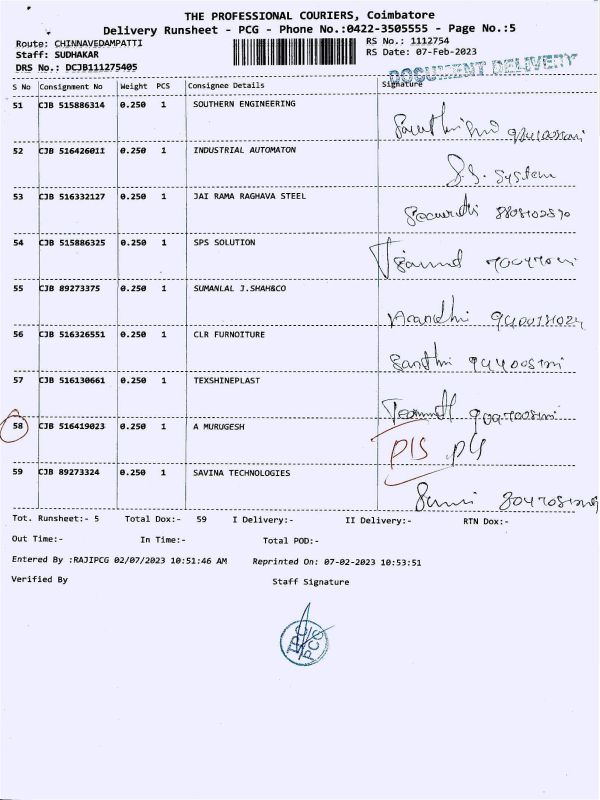 THE PROFESSIONAL COURIERS, Coimbatore
Delivery Runsheet - PCG - Phone No.:0422-3505555 - Page No.:5
Route: CHINNAVEDAMPATTI
RS No.: 1112754
Staff: SUDHAKAR
RS Date: 07-Feb-2023
DRS No.: DCJB111275405
DOCUMENT DELIVERY
S No Consignment No Weight PCS Consignee Details Signature
51 CJB 515886314 0.250 1 SOUTHERN ENGINEERING
52 CJB 516426011 0.250 1 INDUSTRIAL AUTOMATON
S.S. System
53 CJB 516332127 0.250 1 JAI RAMA RAGHAVA STEEL
54 CJB 515886325 0.250 1 SPS SOLUTION
55 CJB 89273375 0.250 1 SUMANLAL J.SHAH&CO
56 CJB 516326551 0.250 1 CLR FURNOITURE
57 CJB 516130661 0.250 1 TEXSHINEPLAST
58 CJB 516419023 0.250 1 A MURUGESH
59 CJB 89273324 0.250 1 SAVINA TECHNOLOGIES
Tot. Runsheet:- 5 Total Dox:- 59 I Delivery:- II Delivery:- RTN Dox:-
Out Time:- In Time:- Total POD:-
Entered By :RAJIPCG 02/07/2023 10:51:46 AM Reprinted On: 07-02-2023 10:53:51
Verified By Staff Signature
TPC
PCG